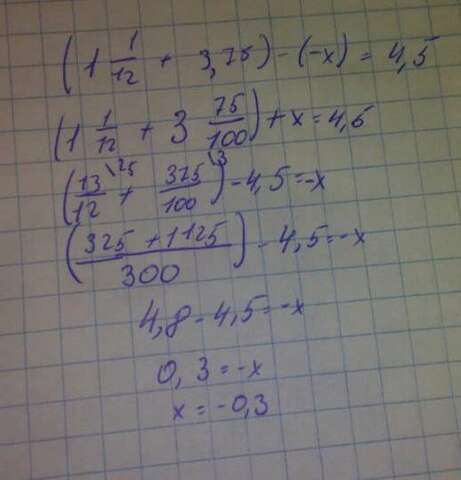 (1 1/12 + 3,75) - (-x) = 4,5
(1 1/12 + 3 75/100) + x = 4,5
(13/12 \25 + 375/100 \3) - 4,5 = -x
((325 + 1125)/300) - 4,5 = -x
4,8 - 4,5 = -x
0,3 = -x
x = -0,3